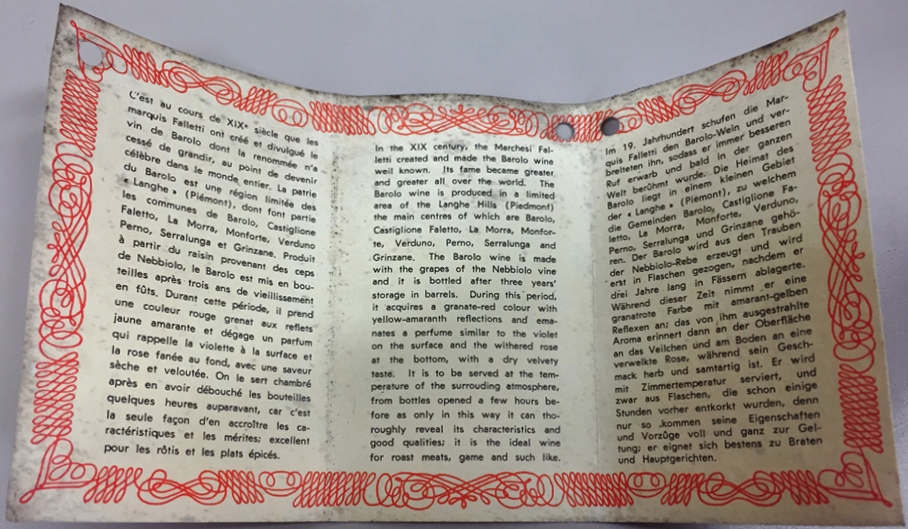 C'est au cours de XIXe siècle que les
marquis Falletti ont créé et divulgué le
vin de Barolo dont la renommée n'a
cessé de grandir, au point de devenir
célèbre dans le monde entier. La patrie
du Barolo est une région limitée des
« Langhe » (Piémont), dont font partie
les communes de Barolo, Castiglione
Faletto, La Morra, Monforte, Verduno
Perno, Serralunga et Grinzane. Produit
à partir du raisin provenant des ceps
de Nebbiolo, le Barolo est mis en bou-
teilles après trois ans de vieillissement
en fûts. Durant cette période, il prend
une couleur rouge grenat aux reflets
jaune amarante et dégage un parfum
qui rappelle la violette à la surface et
la rose fanée au fond, avec une saveur
sèche et veloutée. On le sert chambré
après en avoir débouché les bouteilles
quelques heures auparavant, car c'est
la seule façon d'en accroître les ca-
ractéristiques et les mérites; excellent
pour les rôtis et les plats épicés.
In the XIX century, the Marchesi Fal-
letti created and made the Barolo wine
well known. Its fame became greater
and greater all over the world. The
Barolo wine is produced in a limited
area of the Langhe Hills (Piedmont)
the main centres of which are Barolo,
Castiglione Faletto, La Morra, Monfor-
te, Verduno, Perno, Serralunga and
Grinzane. The Barolo wine is made
with the grapes of the Nebbiolo vine
and it is bottled after three years'
storage in barrels. During this period,
it acquires a granate-red colour with
yellow-amaranth reflections and ema-
nates a perfume similar to the violet
on the surface and the withered rose
at the bottom, with a dry velvety
taste. It is to be served at the tem-
perature of the surrouding atmosphere,
from bottles opened a few hours be-
fore as only in this way it can tho-
roughly reveal its characteristics and
good qualities; it is the ideal wine
for roast meats, game and such like.
Im 19. Jahrhundert schufen die Mar-
quis Falletti den Barolo-Wein und ver-
breiteten ihn, sodass er immer besseren
Ruf erwarb und bald in der ganzen
Welt berühmt wurde. Die Heimat des
Barolo liegt in einem kleinen Gebiet
der « Langhe » (Piemont), zu welchem
die Gemeinden Barolo, Castiglione Fa-
letto, La Morra, Monforte, Verduno,
Perno, Serralunga und Grinzane gehö-
ren. Der Barolo wird aus den Trauben
der Nebbiolo-Rebe erzeugt und wird
erst in Flaschen gezogen, nachdem er
drei Jahre lang in Fässern ablagerte.
Während dieser Zeit nimmt er eine
granatrote Farbe mit amarant-gelben
Reflexen an; das von ihm ausgestrahlte
Aroma erinnert dann an der Oberfläche
an das Veilchen und am Boden an eine
verwelkte Rose, während sein Gesch-
mack herb und samtartig ist. Er wird
mit Zimmertemperatur serviert, und
zwar aus Flaschen, die schon einige
Stunden vorher entkorkt wurden, denn
nur so kommen seine Eigenschaften
und Vorzüge voll und ganz zur Gel-
tung; er eignet sich bestens zu Braten
und Hauptgerichten.